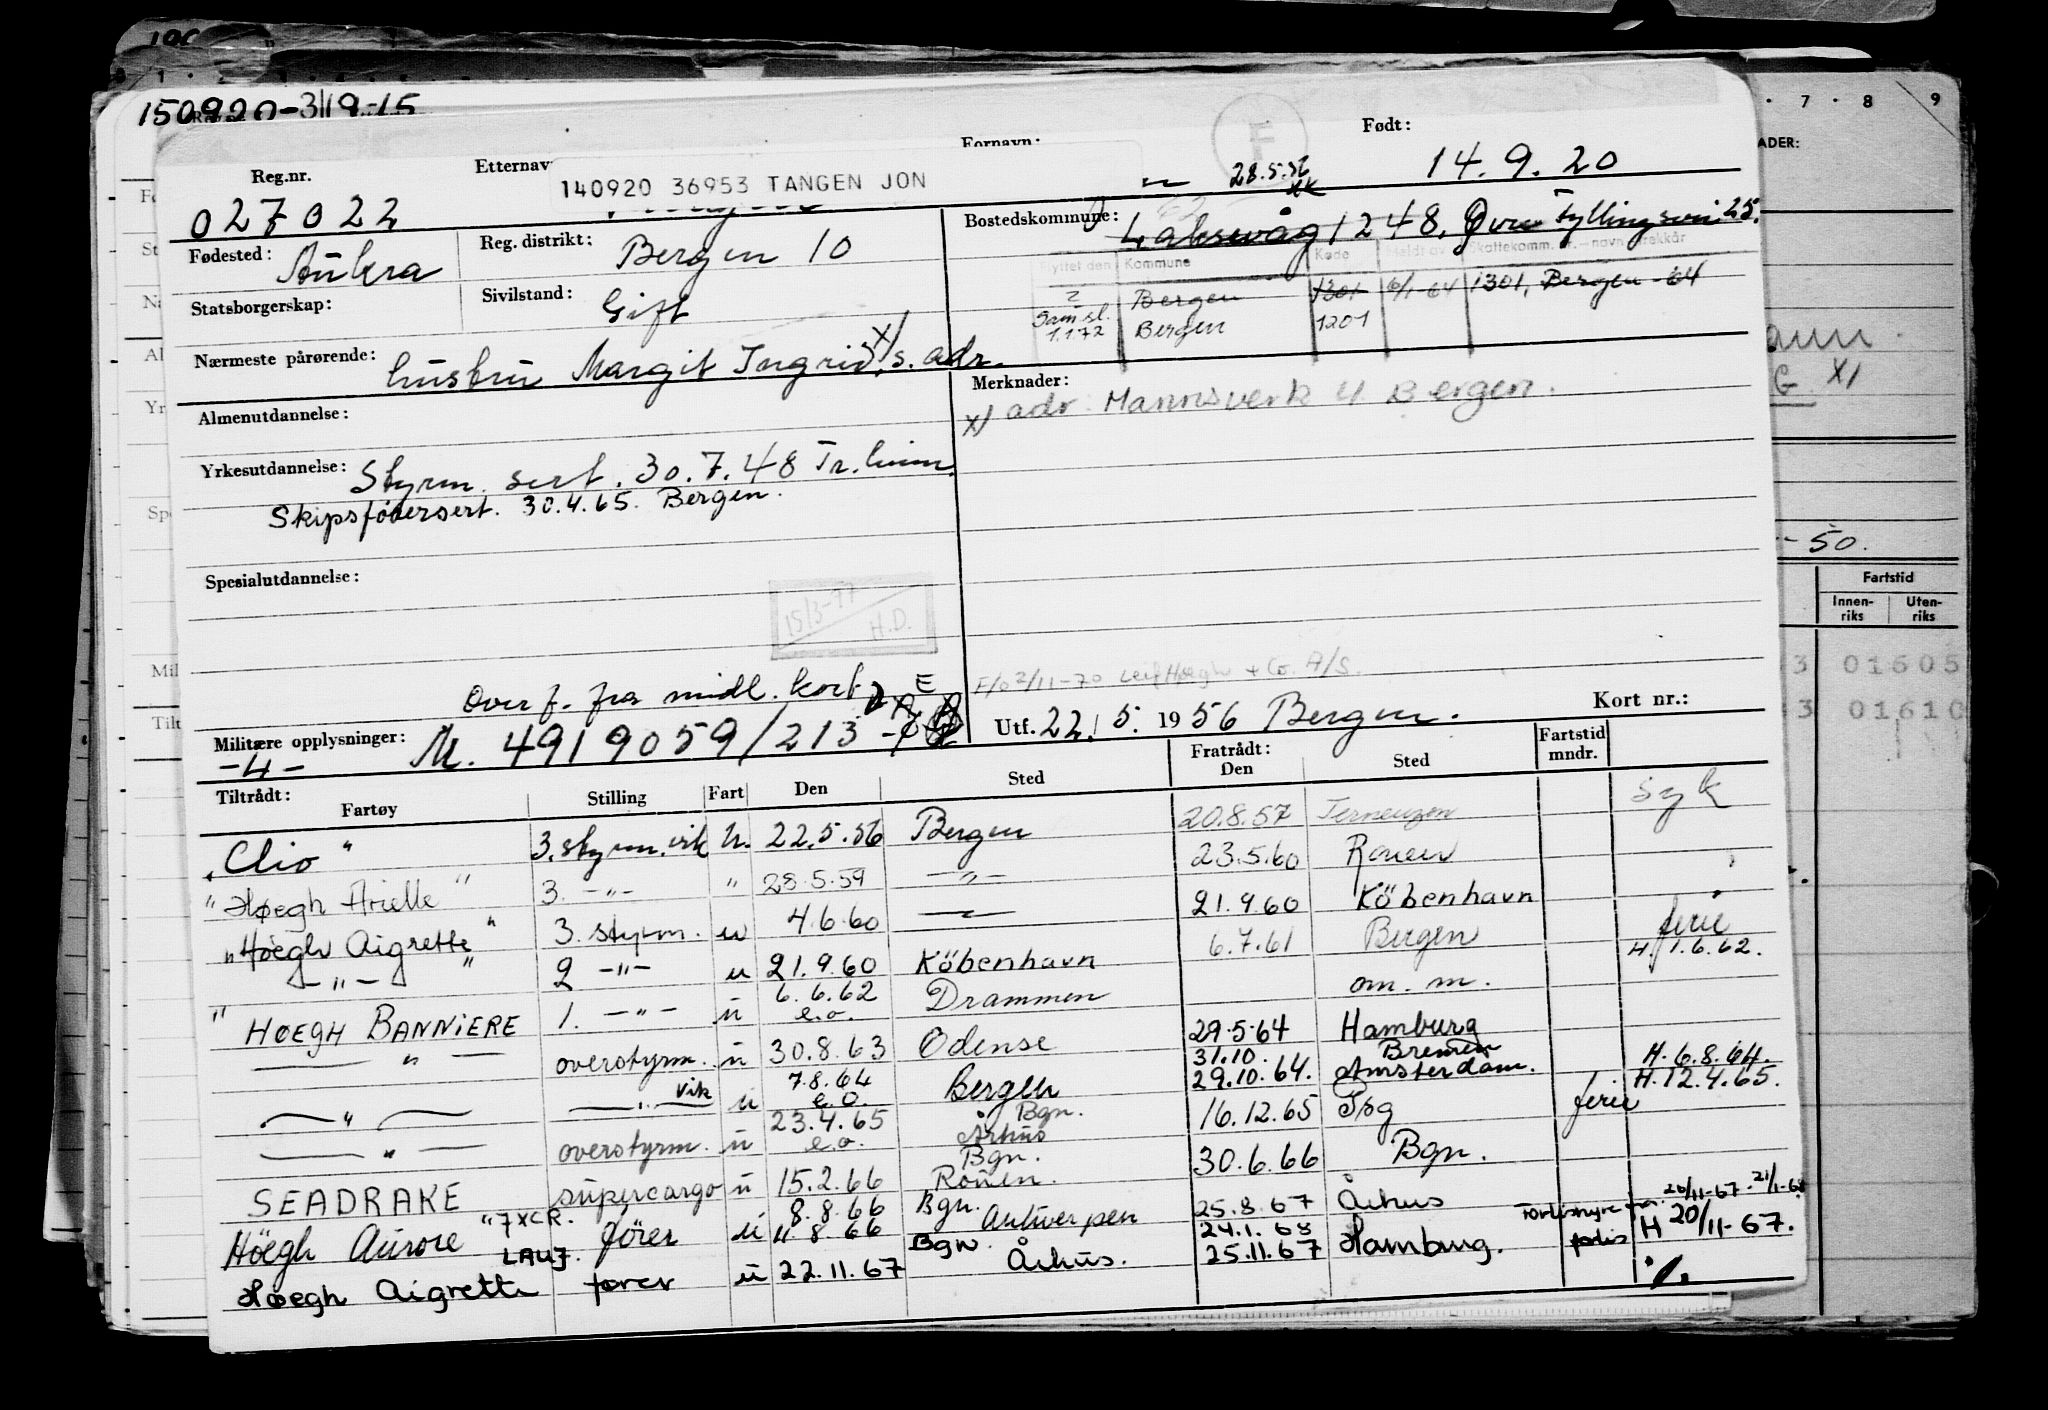 150920-31915
Reg.nr.
Fornavn:
Født:
140920 36953 TANGEN JON
28.5.56
14.9.20
027022
Bostedskommune:
Laksevåg 1248, Øvre Fyllingsvei 25.
Fødested: Aukra
Reg. distrikt: Bergen 10
Flyttet den Kommune Kode Meldt av Skattekomm. nr.-navn trekkår
Bergen 1301 6/1-64 1301, Bergen -64
Sam.sl. 1.1.72 Bergen 1201
Statsborgerskap:
Sivilstand: Gift
Nærmeste pårørende: hustru Margit Ingrid x/ s. adr.
Almenutdannelse:
Merknader:
x/ adr. Mannsverk 4 Bergen.
Yrkesutdannelse: Styrm. sert. 30.7.48 Tr.heim.
Skipsførersert. 30.4.65. Bergen.
Spesialutdannelse:
15/3-77
H.D.
Overf. fra midl. kort
E
F/o 2/11-70 Leif Høegh + Co. A/S.
Militære opplysninger: M. 4919059/213
-4-
Utf. 22.5.1956 Bergen.
Kort nr.:
Tiltrådt:
Fratrådt:
Fartøy Stilling Fart Den Sted Den Sted Fartstid mndr.
"Clio" 3. styrm. vik U. 22.5.56 Bergen 20.8.57 Terneuzen Syk
"Høegh Arielle" 3. -"- " 28.5.59 -"- 23.5.60 Rouen
"Höegh Aigrette" 3. styrm. u 4.6.60 -"- 21.9.60 Köbenhavn
-"- 2 -"- u 21.9.60 Köbenhavn 6.7.61 Bergen ferie H. 1.6.62.
"HØEGH BANNIERE 1. -"- u 6.6.62 e.o. Drammen om. m.
-"- overstyrm. u 30.8.63 Odense 29.5.64 Hamburg
-"- -"- vik u 7.8.64 e.o. Bergen 31.10. 29.10.64. Bremen Amsterdam. H. 6.8.64. H. 12.4.65.
-"- overstyrm. u 23.4.65 e.o. Bgn. Århus 16.12.65 Tbg ferie
SEADRAKE supercargo u 15.2.66 Bgn. Rouen. 30.6.66 Bgn.
Höegh Aurore "7XCR. förer u 8.8.66 11.8.66 Bgn. Antwerpen 25.8.67 Århus
Høegh Aigrette LAUJ. fører u 22.11.67 Bgn. Århus. 24.1.68 25.11.67 Hamburg. H 20/11-67.
20/11-67-21/1-68
7 8 9
ADER:
G x/
-50.
Fartstid
Innen-riks Uten-riks
3 01605
3 01610